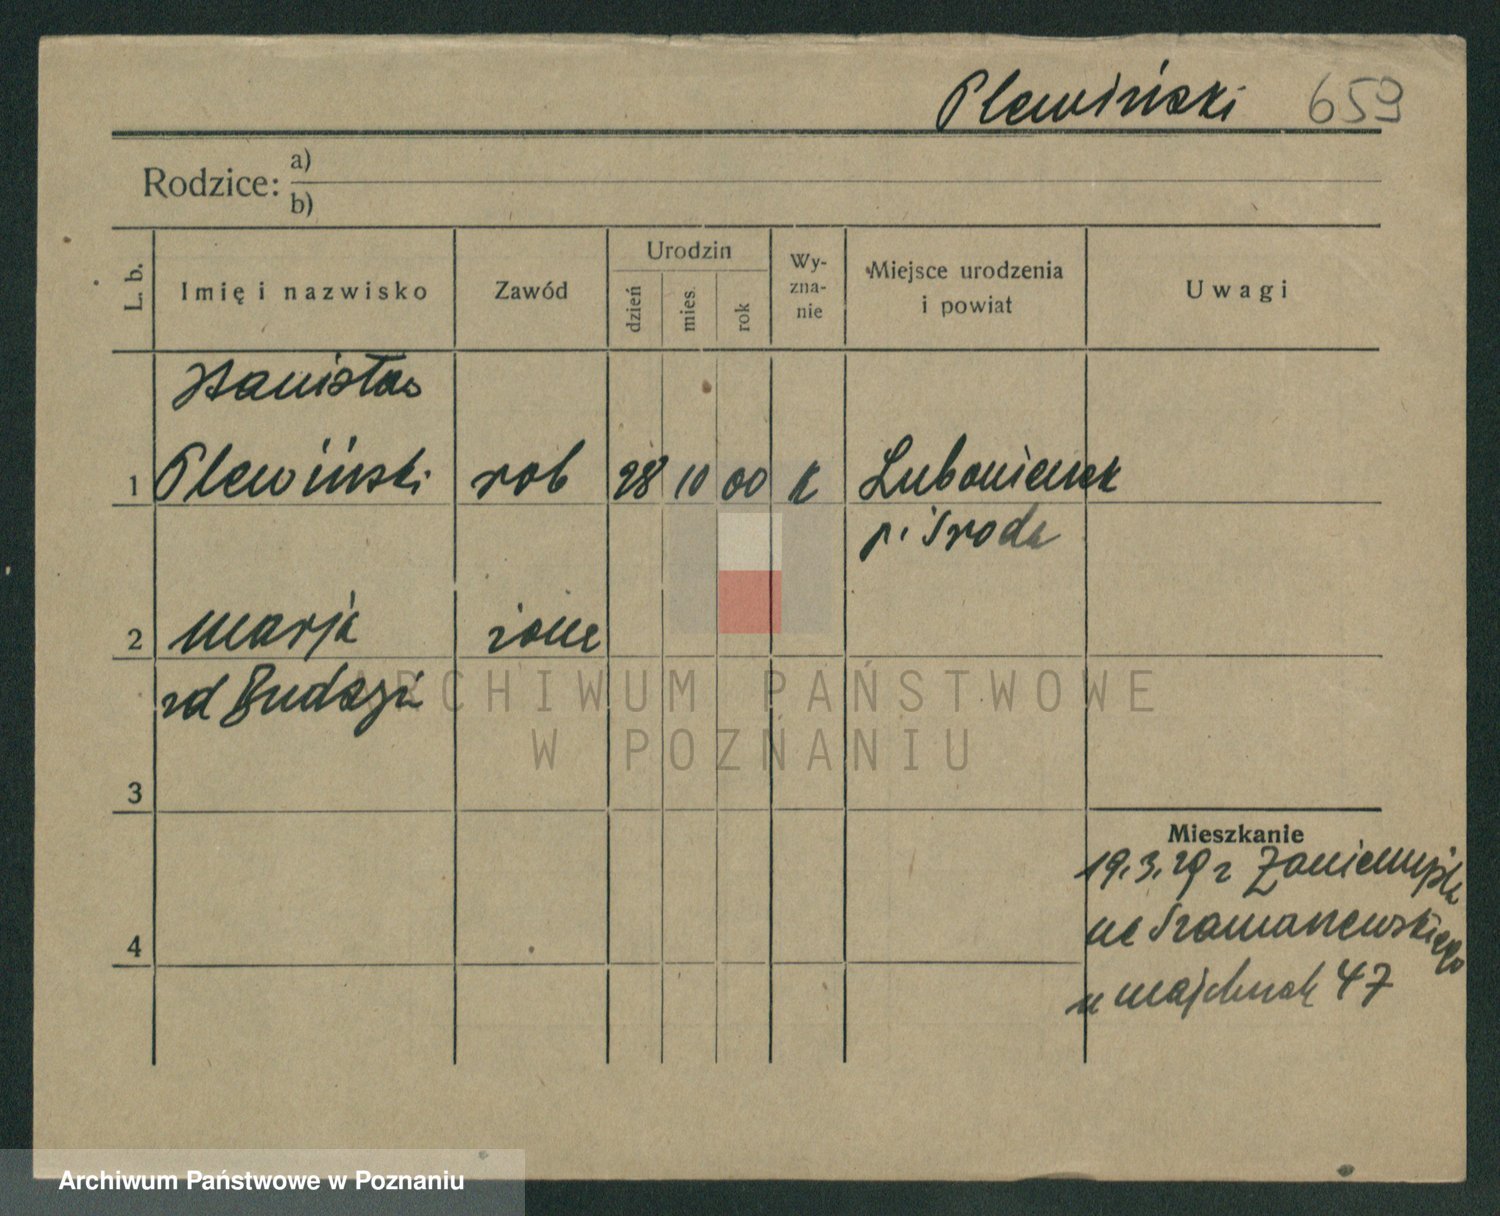 Plewiński 659
Rodzice: a)
b)
L. b.
Imię i nazwisko
Zawód
Urodzin
dzień
mies.
rok
Wy-
zna-
nie
Miejsce urodzenia
i powiat
Uwagi
Stanisław
1 Plewiński rob 28 10 00 K Lubonieczek
p. Środa
2 Marja żona
3
Mieszkanie
19.3.29 z Zaniemyśla
4
47
ARCHIWUM PAŃSTWOWE
W POZNANIU
Archiwum Państwowe w Poznaniu